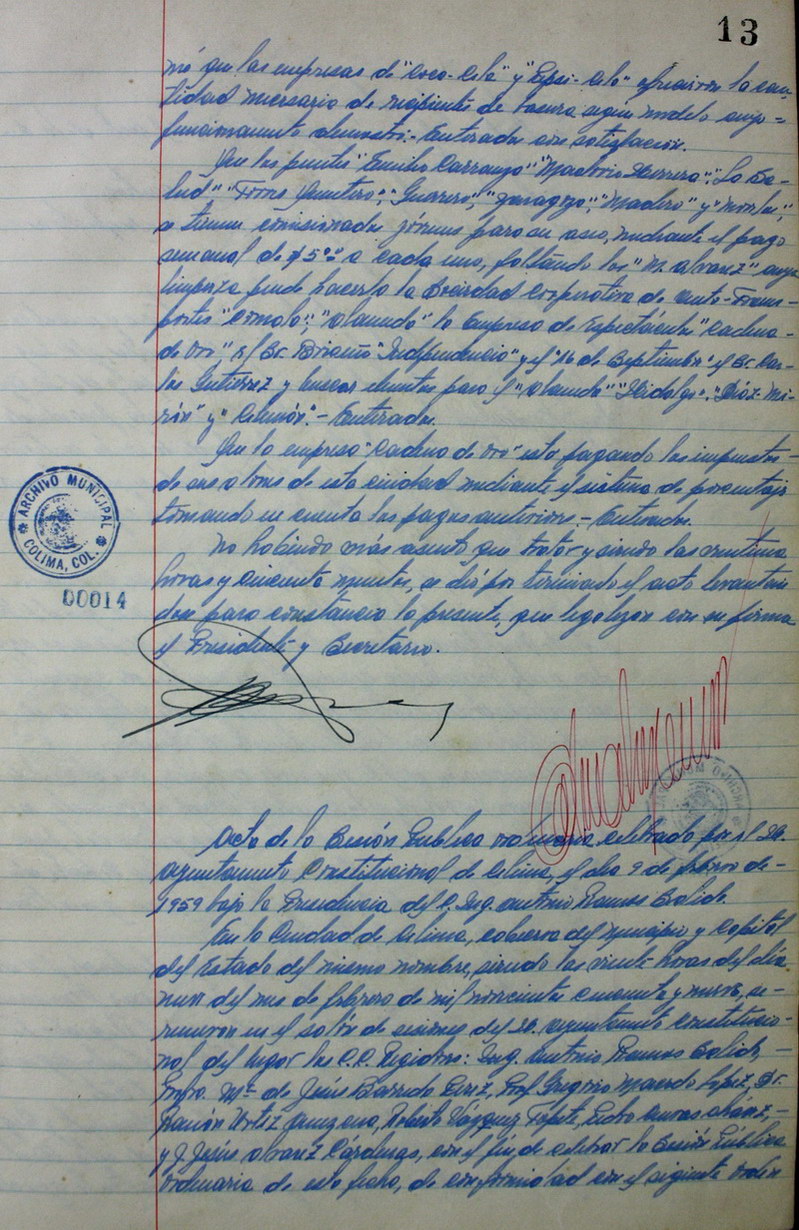 13
mó que las empresas de "Coca-Cola" y "Epsi-Cola" ofrecieron la can-
tidad necesaria de recipiente de basura según modelo cuyo
funcionamiento demostró.- Enterados con satisfacción.
Que los puentes "Emilio Carranza" "Maclovio Herrera", "La Sa-
lud" "Torres Quintero", "Guerrero", "Zaragoza", "Madero" y "Morelos",
se tienen comisionados jóvenes para su aseo, mediante el pago
semanal de $5.00 a cada uno, faltando los "M. Alvarez" cuya
limpieza puede hacerla la Sociedad Cooperativa de Auto-Trans-
portes "Comala", "Alameda" la Empresa de Espectáculos "Cadena
de Oro", el Sr. Briceño "Independencia" y el "16 de Septiembre" el Sr. Car-
los Gutiérrez y buscar elementos para el "Alameda" "Hidalgo", "Díaz Mi-
rón" y "Colimán".- Enterados.
Que la empresa "Cadena de Oro" está pagando los impuestos
de sus de esta ciudad mediante el sistema de porcentaje
tomando en cuenta los pagos anteriores.- Enterados.
No habiendo más asunto que tratar y siendo las veintiuna
horas y cincuenta minutos, se dió por terminado el acto levantán
dose para constancia la presente, que legalizan con su firma
el Presidente y Secretario.
ARCHIVO MUNICIPAL
COLIMA, COL.
00014
Acta de la Sesión Pública ordinaria celebrada por el H.
Ayuntamiento Constitucional de Colima, el día 9 de febrero de-
1959 bajo la Presidencia del C. Ing. Antonio Ramos Salido.
En la Ciudad de Colima, cabecera del municipio y Capital
del Estado del mismo nombre, siendo las veinte horas del día
nueve del mes de febrero de mil novecientos cincuenta y nueve, se-
reunieron en el salón de sesiones del H. Ayuntamiento Constitucio-
nal del lugar los C.C. Regidores: Ing. Antonio Ramos Salido,
Profra. Ma. de Jesús Barreda Pérez, Prof. Gregorio Macedo López, Dr.
Ramón Ortiz Janzen, Roberto Vázquez Tapete, Pedro Cuevas
y J. Jesús Alvarez Cárdenas, con el fin de celebrar la Sesión Pública
Ordinaria de esta fecha, de conformidad con el siguiente Orden